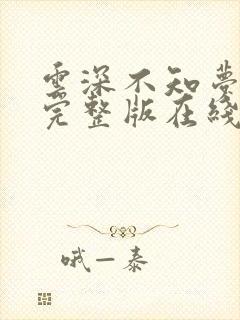 雲深不知夢
完整版在綫
哦一泰